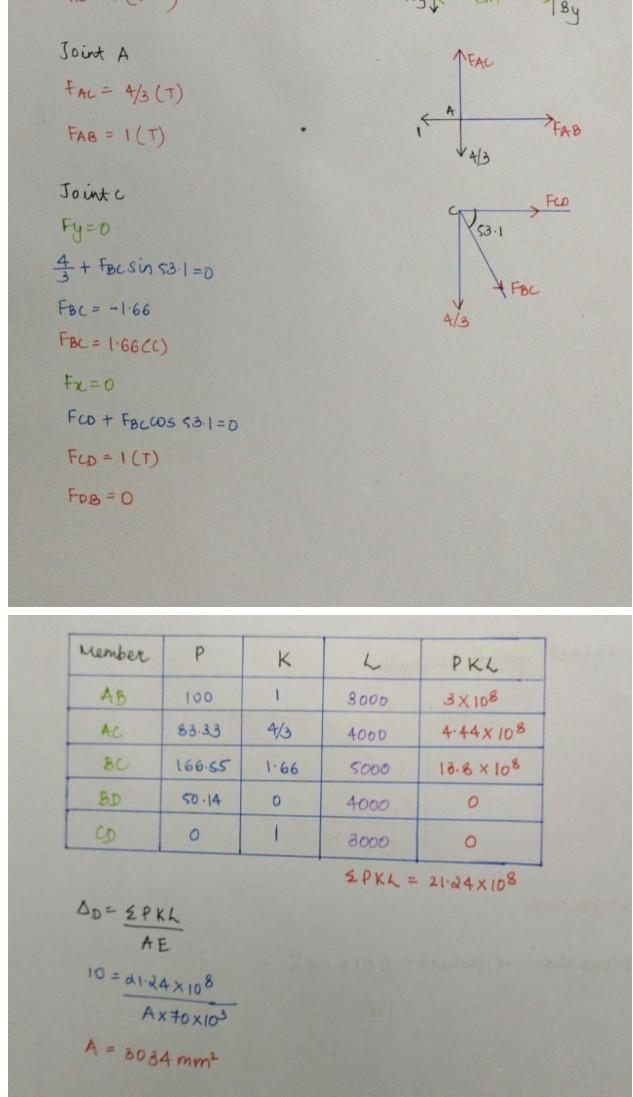 By
Joint A
FAC = 4/3 (T)
FAB = 1 (T)
FAC
A
1
FAB
4/3
Joint C
Fy=0
4/3 + FBC sin 53.1=0
FBC = -1.66
FBC = 1.66(C)
Fx=0
FCD + FBC cos 53.1=0
FCD = 1 (T)
FDB = 0
C
FCD
53.1
FBC
4/3
Member P K L PKL
AB 100 1 3000 3×10⁸
AC 83.33 4/3 4000 4.44×10⁸
BC 166.55 1.66 5000 13.8×10⁸
BD 50.14 0 4000 0
CD 0 1 3000 0
ΣPKL = 21.24×10⁸
ΔD = ΣPKL
AE
10 = 21.24×10⁸
A×70×10³
A = 3034 mm²